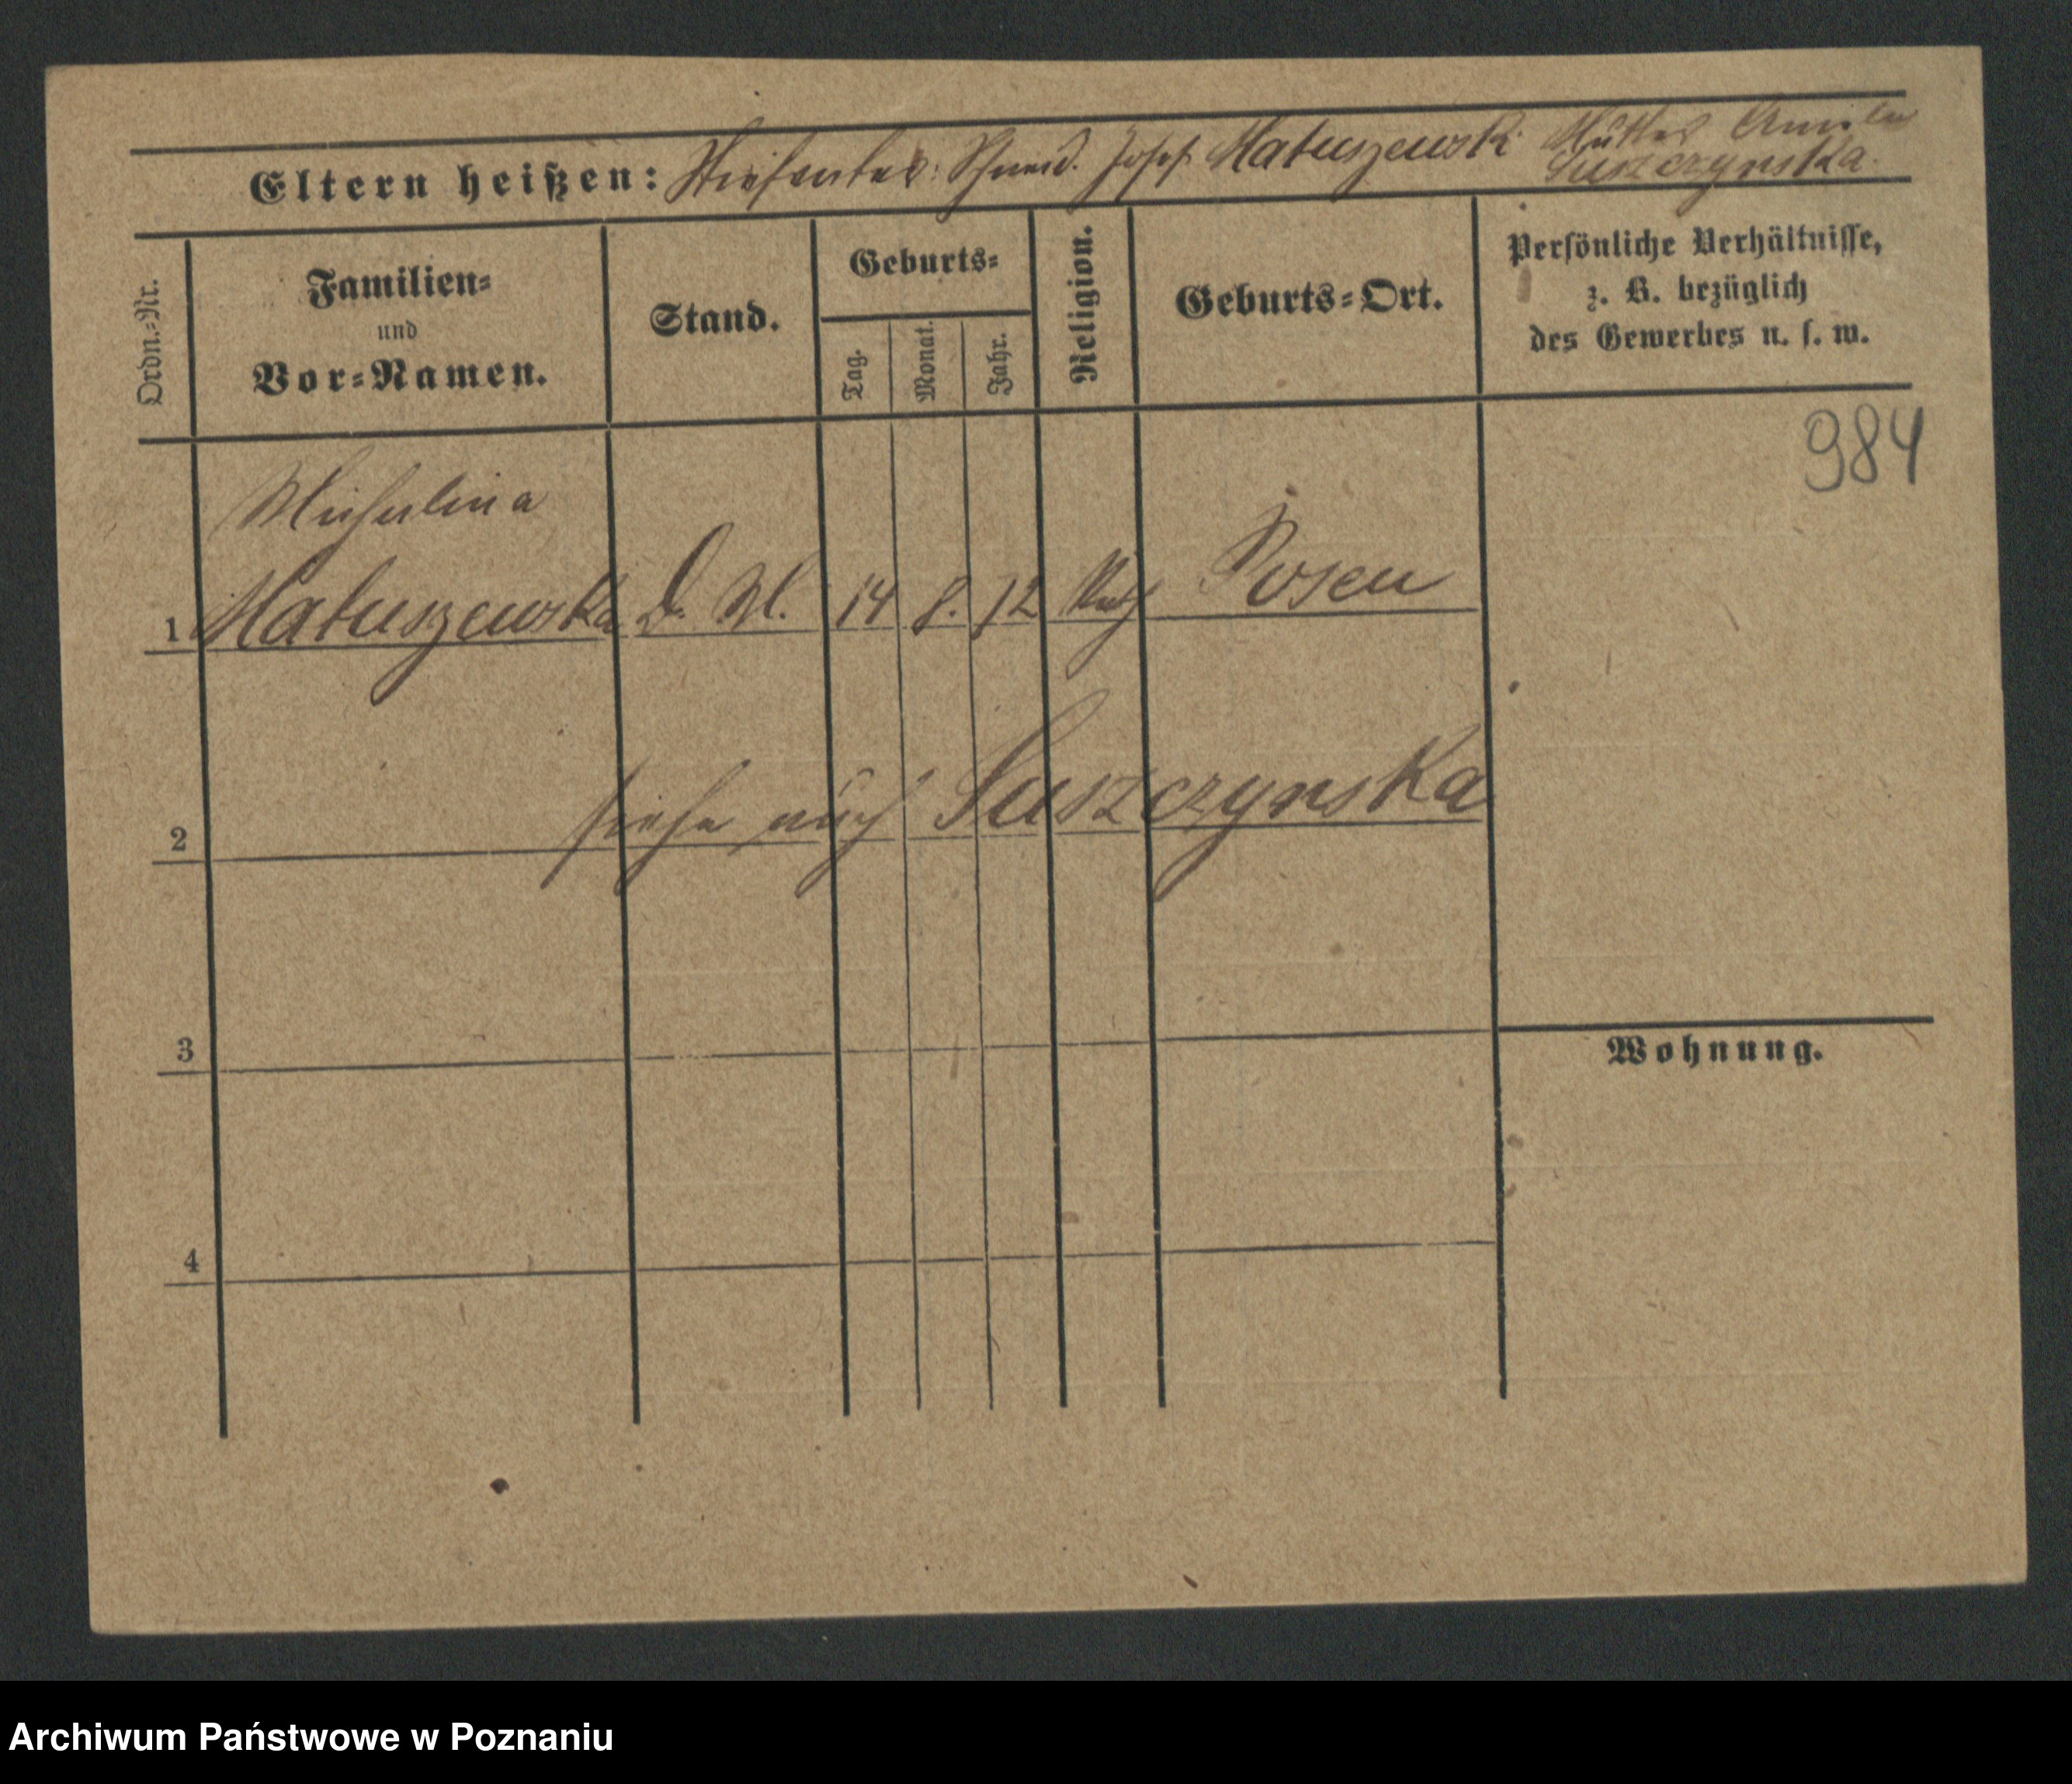 Eltern heißen: Stiefvater: Schneid. Josef Matuszewski Mutter
Suszczynska.
Ordn.-Nr.
Familien-
und
Vor-Namen.
Stand.
Geburts-
Tag.
Monat.
Jahr.
Religion.
Geburts-Ort.
Persönliche Verhältnisse,
z. B. bezüglich
des Gewerbes u. s. w.
984
Michalina
1 Matuszewska D. M. 14 8. 72 Kath Posen
2 siehe auch Suszczynska
3
Wohnung.
4
Archiwum Państwowe w Poznaniu